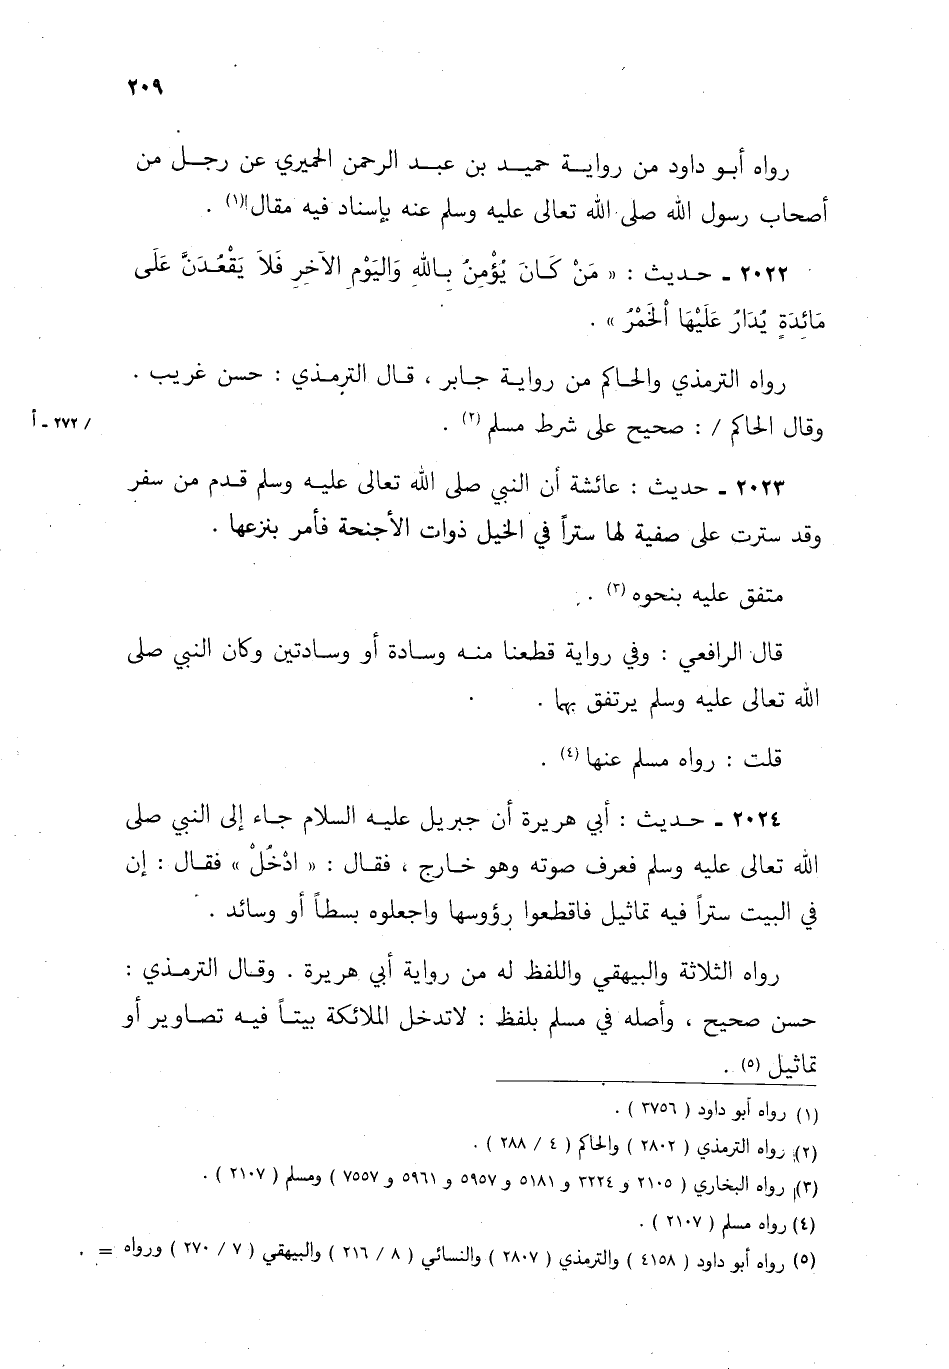 ٢٠٩
رواه أبو داود من رواية حميد بن عبد الرحمن الحميري عن رجل من
أصحاب رسول الله صلى الله تعالى عليه وسلم عنه بإسناد فيه مقال(١) .
٢٠٢٢ ـ حديث : « مَنْ كَانَ يُؤْمِنُ بِاللهِ وَالْيَوْمِ الآخِرِ فَلاَ يَقْعُدَنَّ عَلَى
مَائِدَةٍ يُدَارُ عَلَيْهَا الْخَمْرُ » .
رواه الترمذي والحاكم من رواية جابر ، قال الترمذي : حسن غريب .
وقال الحاكم / : صحيح على شرط مسلم (٢) .
/ ٢٧٢ ـ أ
٢٠٢٣ ـ حديث : عائشة أن النبي صلى الله تعالى عليه وسلم قدم من سفر
وقد سترت على صفية لها ستراً في الخيل ذوات الأجنحة فأمر بنزعها .
متفق عليه بنحوه (٣) .
قال الرافعي : وفي رواية قطعنا منه وسادة أو وسادتين وكان النبي صلى
الله تعالى عليه وسلم يرتفق بهما .
قلت : رواه مسلم عنها (٤) .
٢٠٢٤ ـ حديث : أبي هريرة أن جبريل عليه السلام جاء إلى النبي صلى
الله تعالى عليه وسلم فعرف صوته وهو خارج ، فقال : « ادْخُلْ » فقال : إن
في البيت ستراً فيه تماثيل فاقطعوا رؤوسها واجعلوه بسطاً أو وسائد .
رواه الثلاثة والبيهقي واللفظ له من رواية أبي هريرة . وقال الترمذي :
حسن صحيح ، وأصله في مسلم بلفظ : لاتدخل الملائكة بيتاً فيه تصاوير أو
تماثيل (٥) .
(١) رواه أبو داود ( ٣٧٥٦ ) .
(٢) رواه الترمذي ( ٢٨٠٢ ) والحاكم ( ٤ / ٢٨٨ ) .
(٣) رواه البخاري ( ٢١٠٥ و ٣٢٢٤ و ٥١٨١ و ٥٩٥٧ و ٥٩٦١ و ٧٥٥٧ ) ومسلم ( ٢١٠٧ ) .
(٤) رواه مسلم ( ٢١٠٧ ) .
(٥) رواه أبو داود ( ٤١٥٨ ) والترمذي ( ٢٨٠٧ ) والنسائي ( ٨ / ٢١٦ ) والبيهقي ( ٧ / ٢٧٠ ) ورواه = .